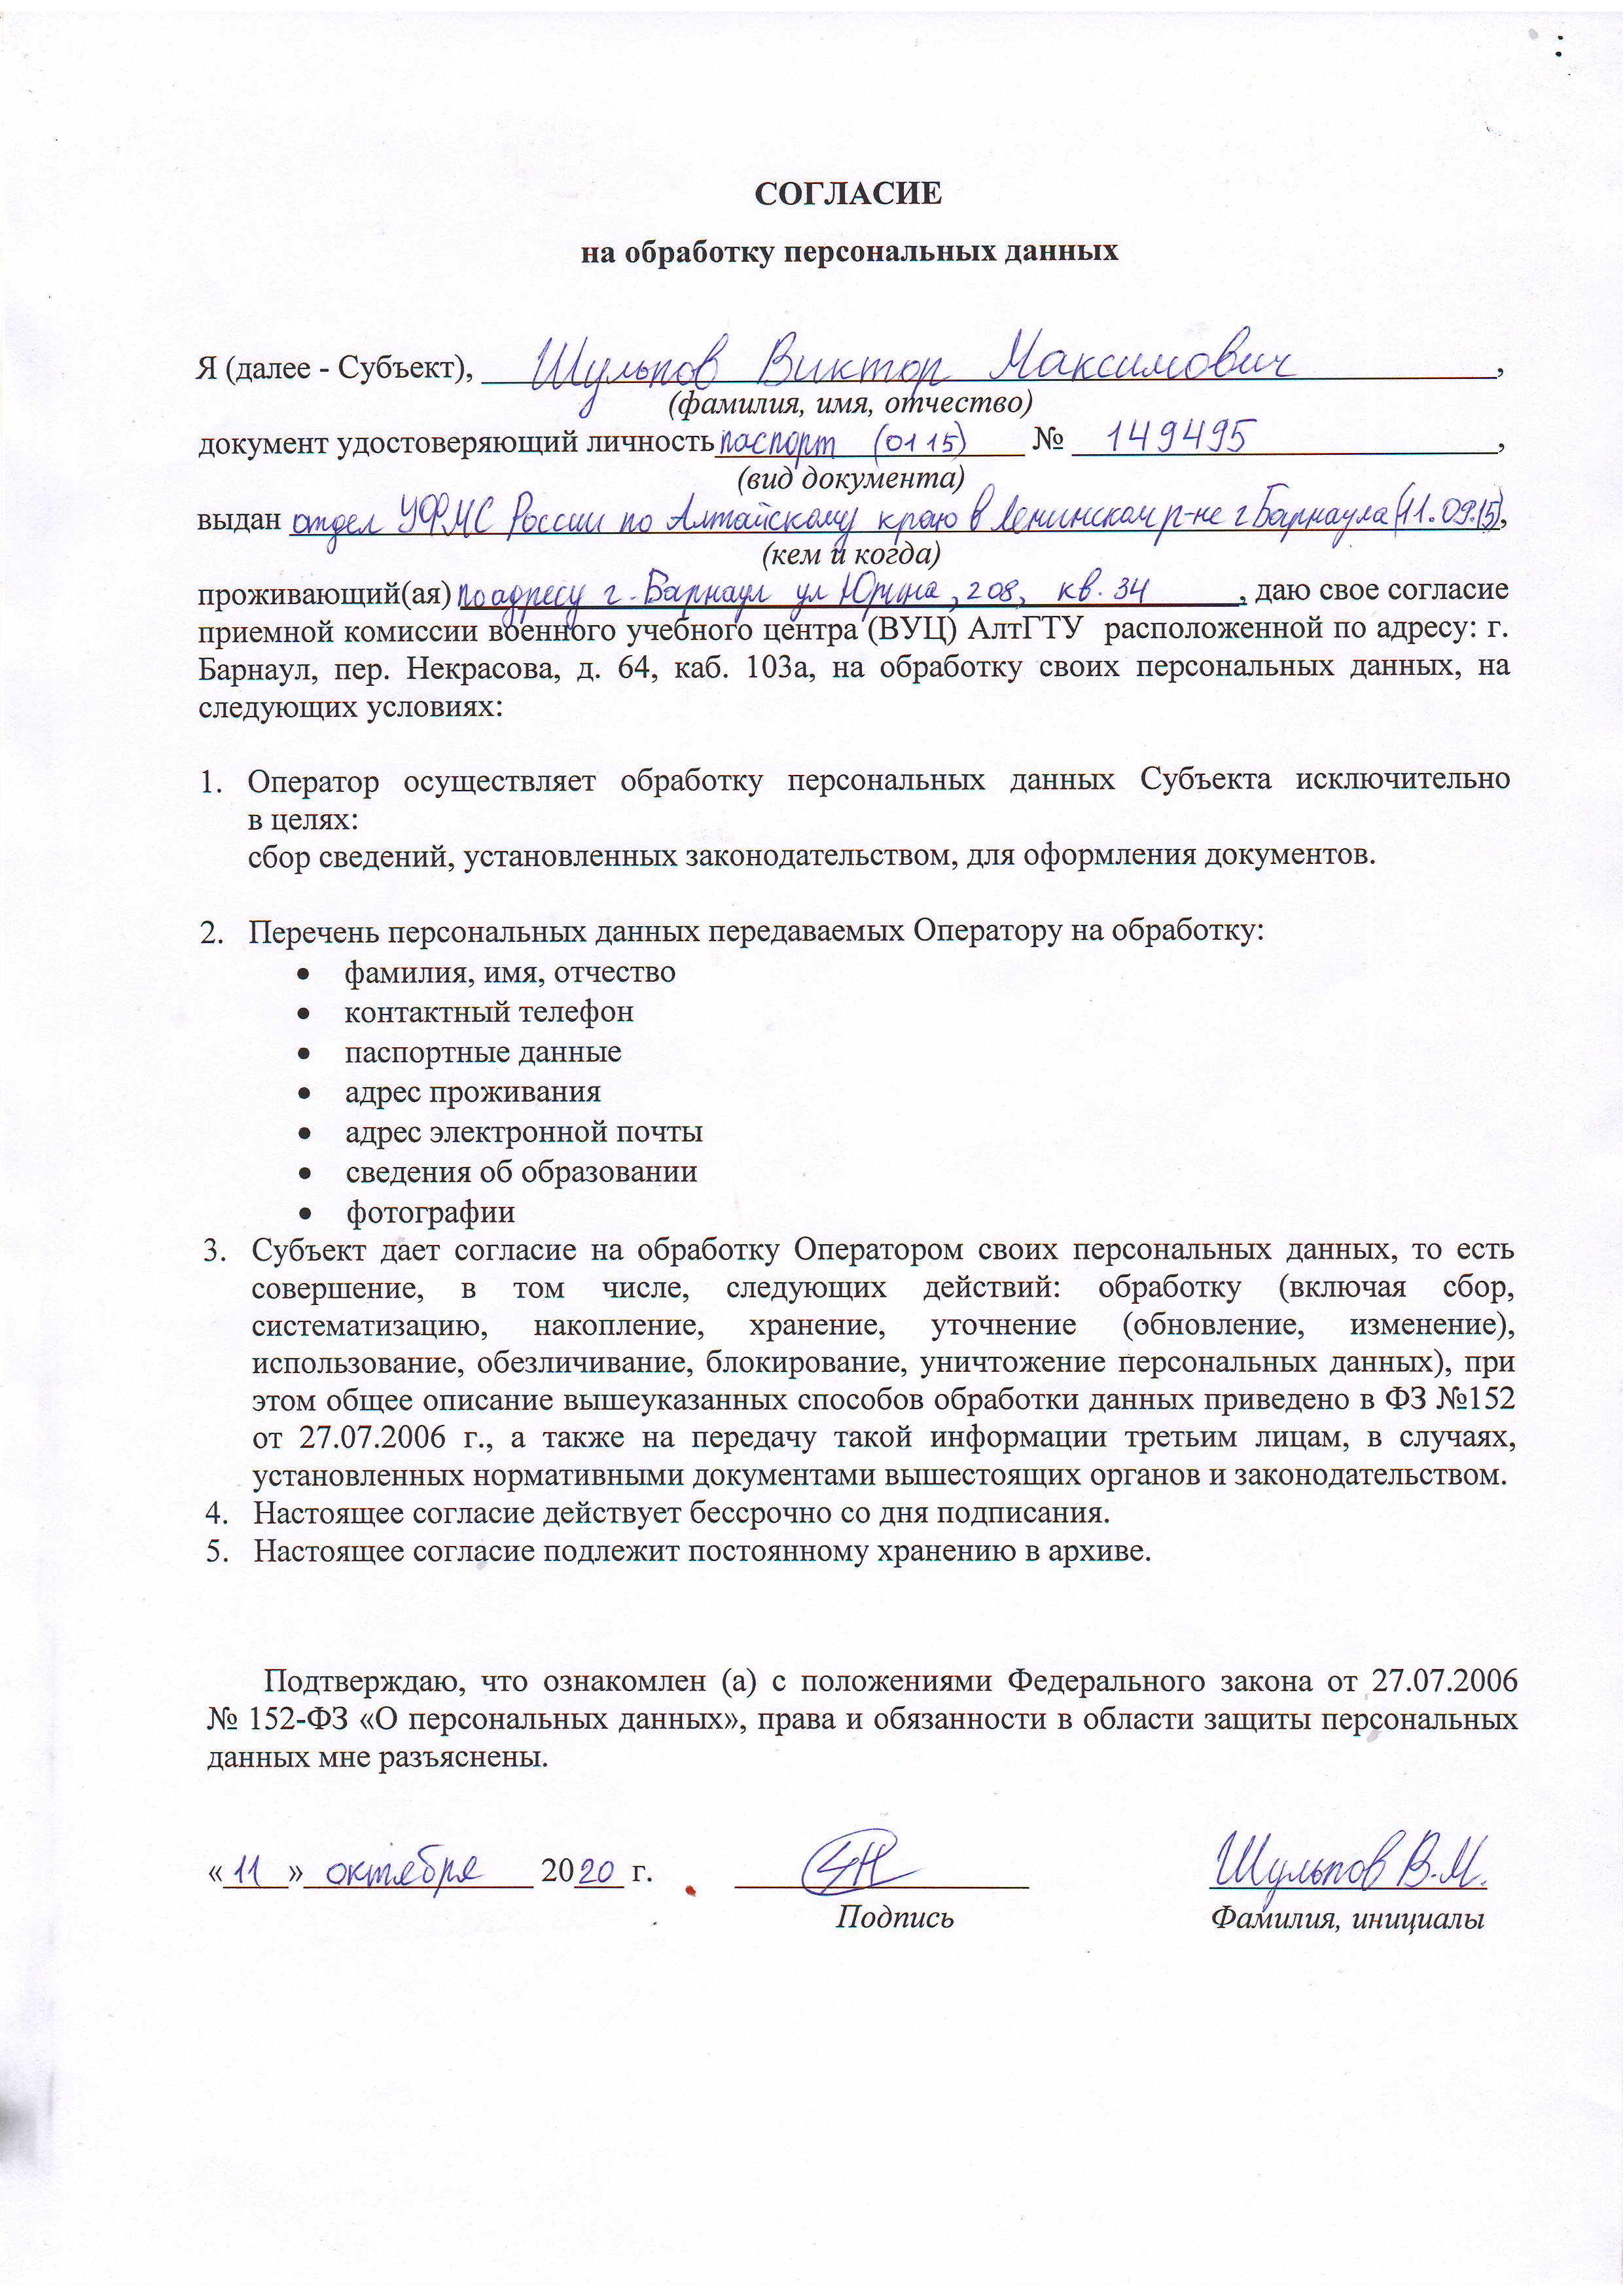 СОГЛАСИЕ
на обработку персональных данных
Я (далее - Субъект), Шульпов Виктор Максимович,
(фамилия, имя, отчество)
документ удостоверяющий личность паспорт (01 15) № 149495,
(вид документа)
выдан отдел УФМС России по Алтайскому краю в Ленинском р-не г Барнаула (11.09.15),
(кем и когда)
проживающий(ая) по адресу г. Барнаул ул Юрина, 208, кв. 34, даю свое согласие
приемной комиссии военного учебного центра (ВУЦ) АлтГТУ расположенной по адресу: г.
Барнаул, пер. Некрасова, д. 64, каб. 103а, на обработку своих персональных данных, на
следующих условиях:
1. Оператор осуществляет обработку персональных данных Субъекта исключительно
в целях:
сбор сведений, установленных законодательством, для оформления документов.
2. Перечень персональных данных передаваемых Оператору на обработку:
• фамилия, имя, отчество
• контактный телефон
• паспортные данные
• адрес проживания
• адрес электронной почты
• сведения об образовании
• фотографии
3. Субъект дает согласие на обработку Оператором своих персональных данных, то есть
совершение, в том числе, следующих действий: обработку (включая сбор,
систематизацию, накопление, хранение, уточнение (обновление, изменение),
использование, обезличивание, блокирование, уничтожение персональных данных), при
этом общее описание вышеуказанных способов обработки данных приведено в ФЗ №152
от 27.07.2006 г., а также на передачу такой информации третьим лицам, в случаях,
установленных нормативными документами вышестоящих органов и законодательством.
4. Настоящее согласие действует бессрочно со дня подписания.
5. Настоящее согласие подлежит постоянному хранению в архиве.
Подтверждаю, что ознакомлен (а) с положениями Федерального закона от 27.07.2006
№ 152-ФЗ «О персональных данных», права и обязанности в области защиты персональных
данных мне разъяснены.
«11» октября 2020 г. Шульпов В.М.
Подпись Фамилия, инициалы